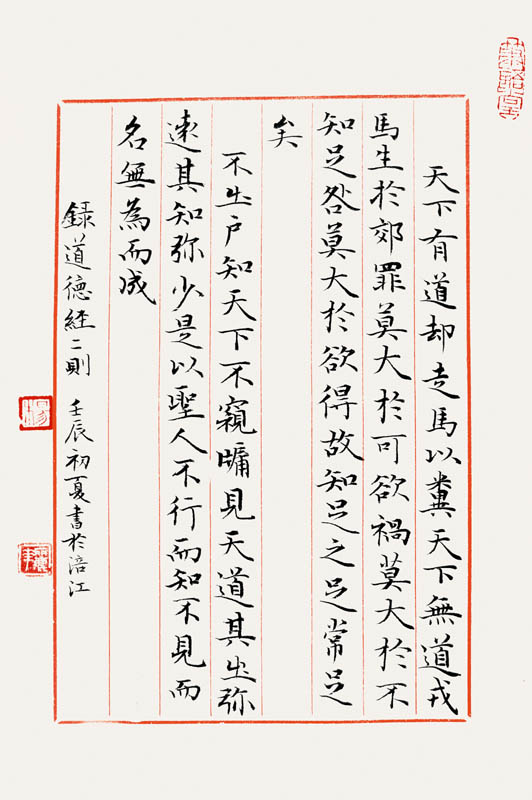 天下有道却走馬以糞天下無道戎
馬生於郊罪莫大於可欲禍莫大於不
知足咎莫大於欲得故知足之足常足
矣
不出户知天下不窺牖見天道其出弥
遠其知弥少是以聖人不行而知不見而
名無為而成
録道德経二則 壬辰初夏書於涪江